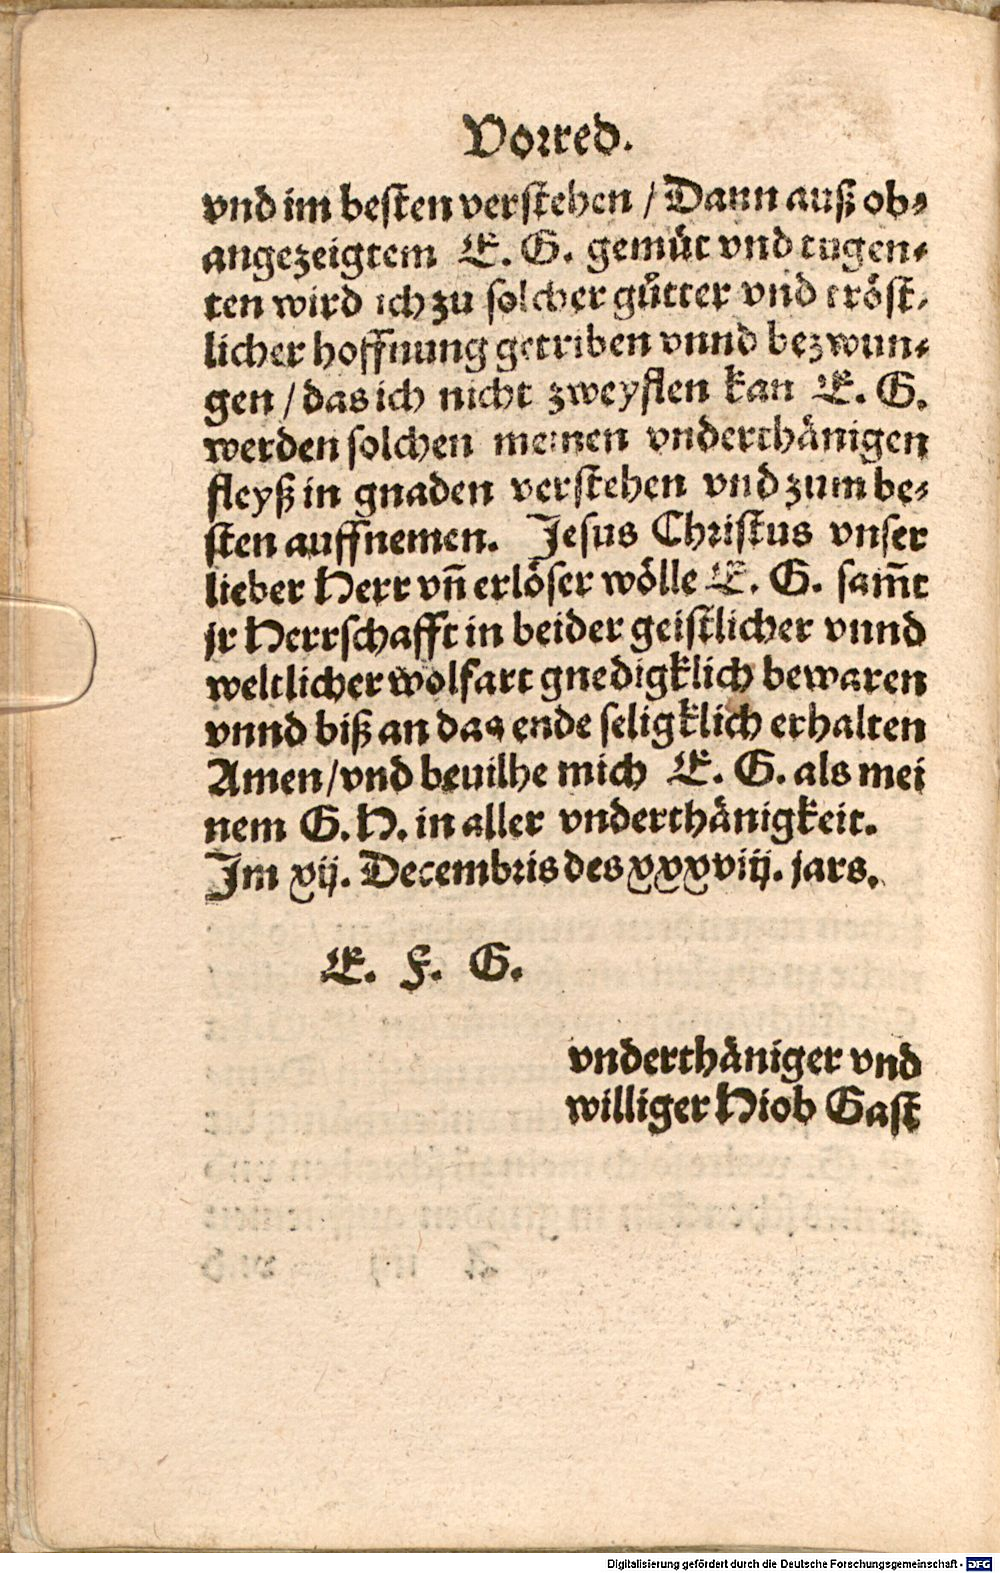 Vorred.
vnd im besten verstehen / Dann auß ob⸗
angezeigtem E. G. gemüt vnd tugen⸗
ten wird ich zu solcher gůtter vnd tröst⸗
licher hoffnung getriben vnnd bezwun⸗
gen / das ich nicht zweyflen kan E. G.
werden solchen meinen vnderthänigen
fleyß in gnaden verstehen vnd zum be⸗
sten auffnemen. Jesus Christus vnser
lieber Herr vñ erlöser wölle E. G. sam̃t
jr Herrschafft in beider geistlicher vnnd
weltlicher wolfart gnedigklich bewaren
vnnd biß an das ende seligklich erhalten
Amen / vnd beuilhe mich E. G. als mei
nem G. H. in aller vnderthänigkeit.
Im xij. Decembris des xxxviij. jars.
E. F. G.
vnderthäniger vnd
williger Hiob Gast
Digitalisierung gefördert durch die Deutsche Forschungsgemeinschaft - DFG